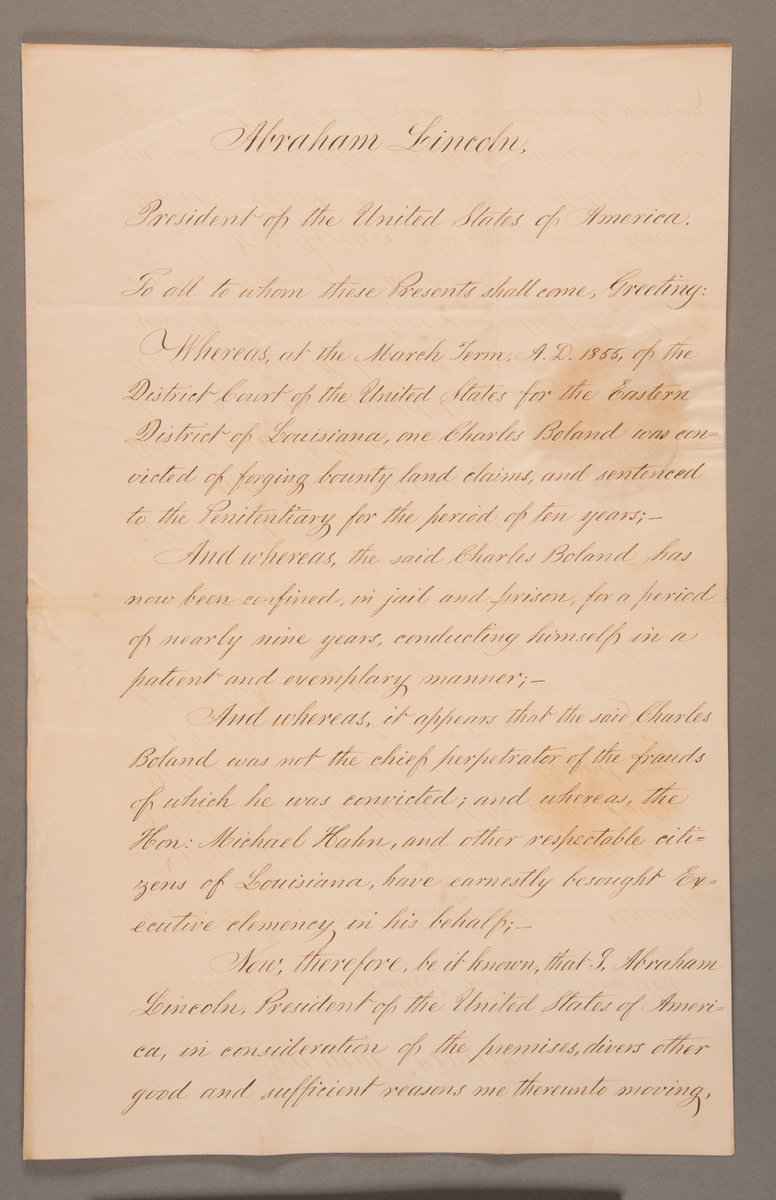 Abraham Lincoln,
President of the United States of America.
To all to whom these Presents shall come, Greeting:
Whereas, at the March Term, A.D. 1855, of the
District Court of the United States for the Eastern
District of Louisiana, one Charles Boland was con=
victed of forging bounty land claims, and sentenced
to the Penitentiary for the period of ten years;–
And whereas, the said Charles Boland has
now been confined, in jail and prison, for a period
of nearly nine years, conducting himself in a
patient and exemplary manner;–
And whereas, it appears that the said Charles
Boland was not the chief perpetrator of the frauds
of which he was convicted; and whereas, the
Hon: Michael Hahn, and other respectable citi=
zens of Louisiana, have earnestly besought Ex=
ecutive clemency in his behalf;–
Now, therefore, be it known, that I, Abraham
Lincoln, President of the United States of Ameri=
ca, in consideration of the premises, divers other
good and sufficient reasons me thereunto moving,